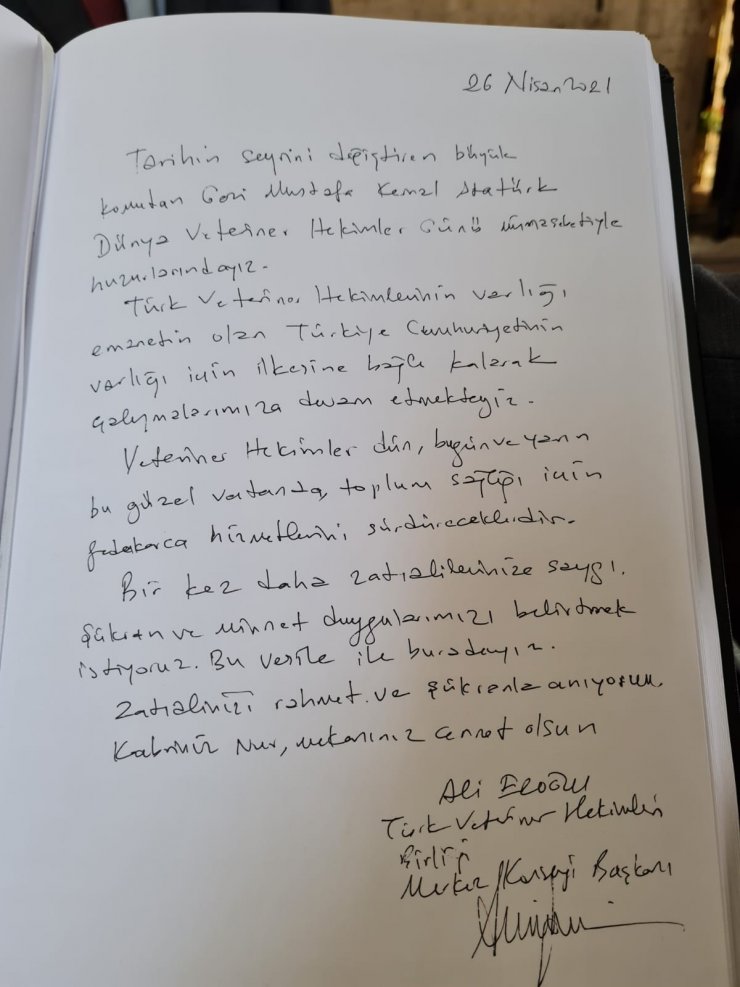 26 Nisan 2021
Tarihin seyrini değiştiren büyük
komutan Gazi Mustafa Kemal Atatürk
Dünya Veteriner Hekimler Günü münasebetiyle
huzurlarındayız.
Türk Veteriner Hekimlerinin varlığı
emanetin olan Türkiye Cumhuriyetinin
varlığı için ilkesine bağlı kalarak
çalışmalarımıza devam etmekteyiz.
Veteriner Hekimler dün, bugün ve yarın
bu güzel vatanda, toplum sağlığı için
fedakarca hizmetlerini sürdüreceklerdir.
Bir kez daha zatıalilerinize saygı,
şükran ve minnet duygularımızı belirtmek
istiyoruz. Bu vesile ile buradayız.
Zatıalinizi rahmet ve şükranla anıyorum
Kabriniz Nur, mekanınız cennet olsun
Ali Eroğlu
Türk Veteriner Hekimleri
Birliği
Merkez Konseyi Başkanı